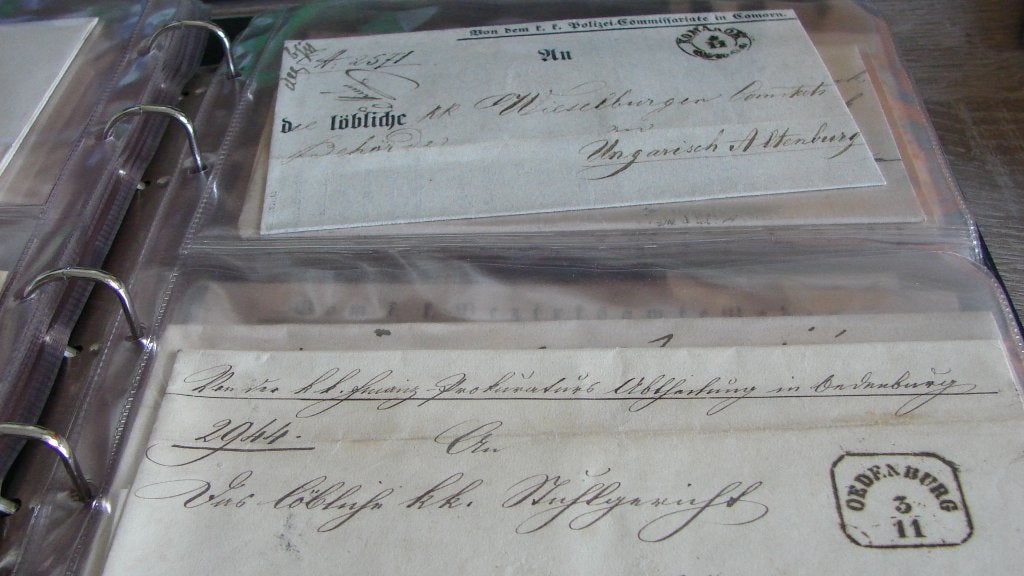 Von dem k. k. Polizei-Commissariate in Comorn.
№ 2571
An
KOMAROM
d löbliche kk Wieselburger Comitats
Behörde
zu
Ungarisch Altenburg
Von der k.k. Finanz Prokuraturs Abtheilung in Oedenburg
2944.
An
Das löbliche kk. Stuhlgericht
OEDENBURG
3
11